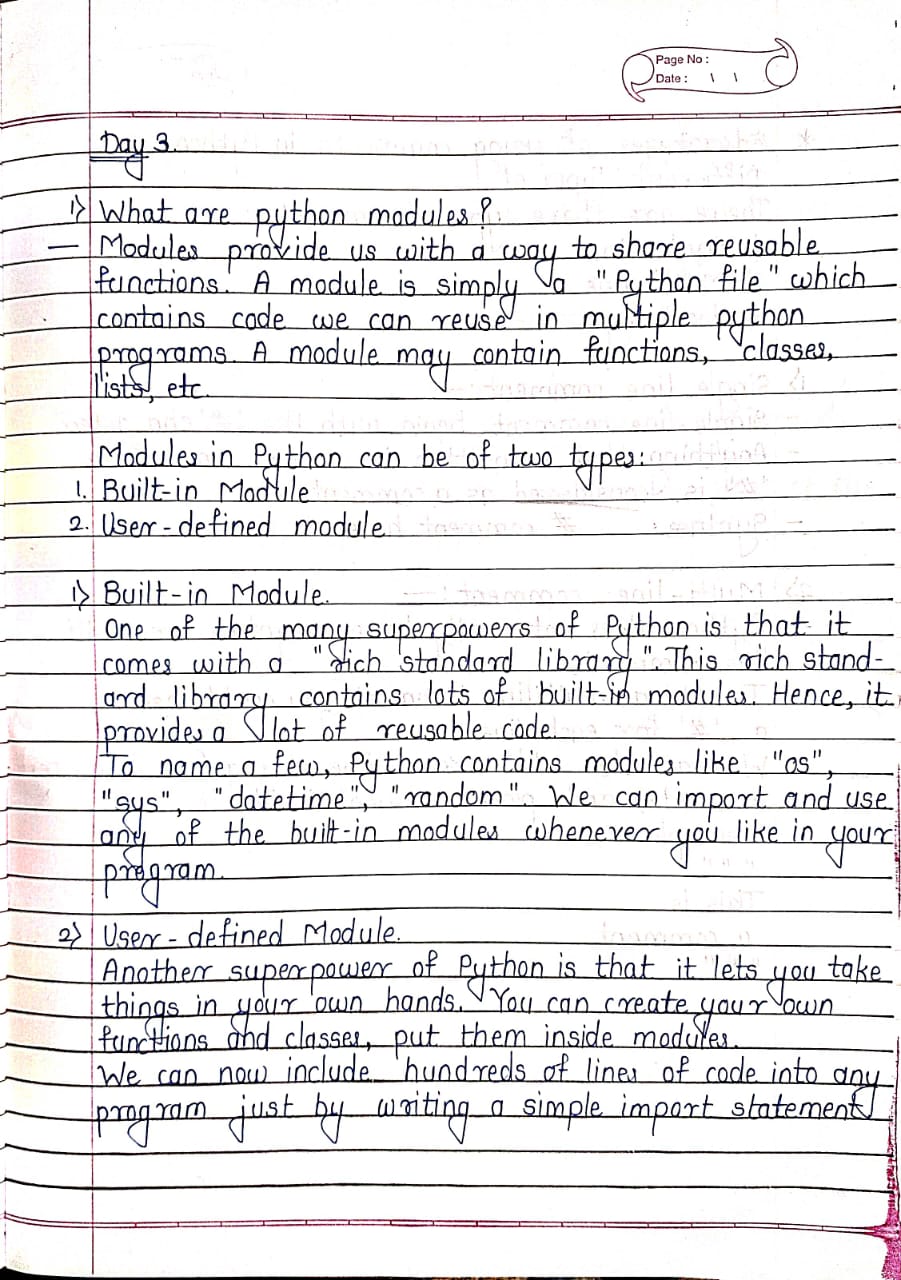 Page No :
Date : \ \
Day 3.
1) What are python modules?
— Modules provide us with a way to share reusable
functions. A module is simply a "Python file" which
contains code we can reuse in multiple python
programs. A module may contain functions, classes,
lists, etc.
Modules in Python can be of two types:
1. Built-in Module
2. User-defined module
1) Built-in Module.
One of the many superpowers of Python is that it
comes with a "rich standard library". This rich stand-
ard library contains lots of built-in modules. Hence, it
provides a lot of reusable code.
To name a few, Python contains modules like "os",
"sys", "datetime", "random". We can import and use
any of the built-in modules whenever you like in your
program.
2) User-defined Module.
Another superpower of Python is that it lets you take
things in your own hands. You can create your own
functions and classes, put them inside modules.
We can now include hundreds of lines of code into any
program just by writing a simple import statement